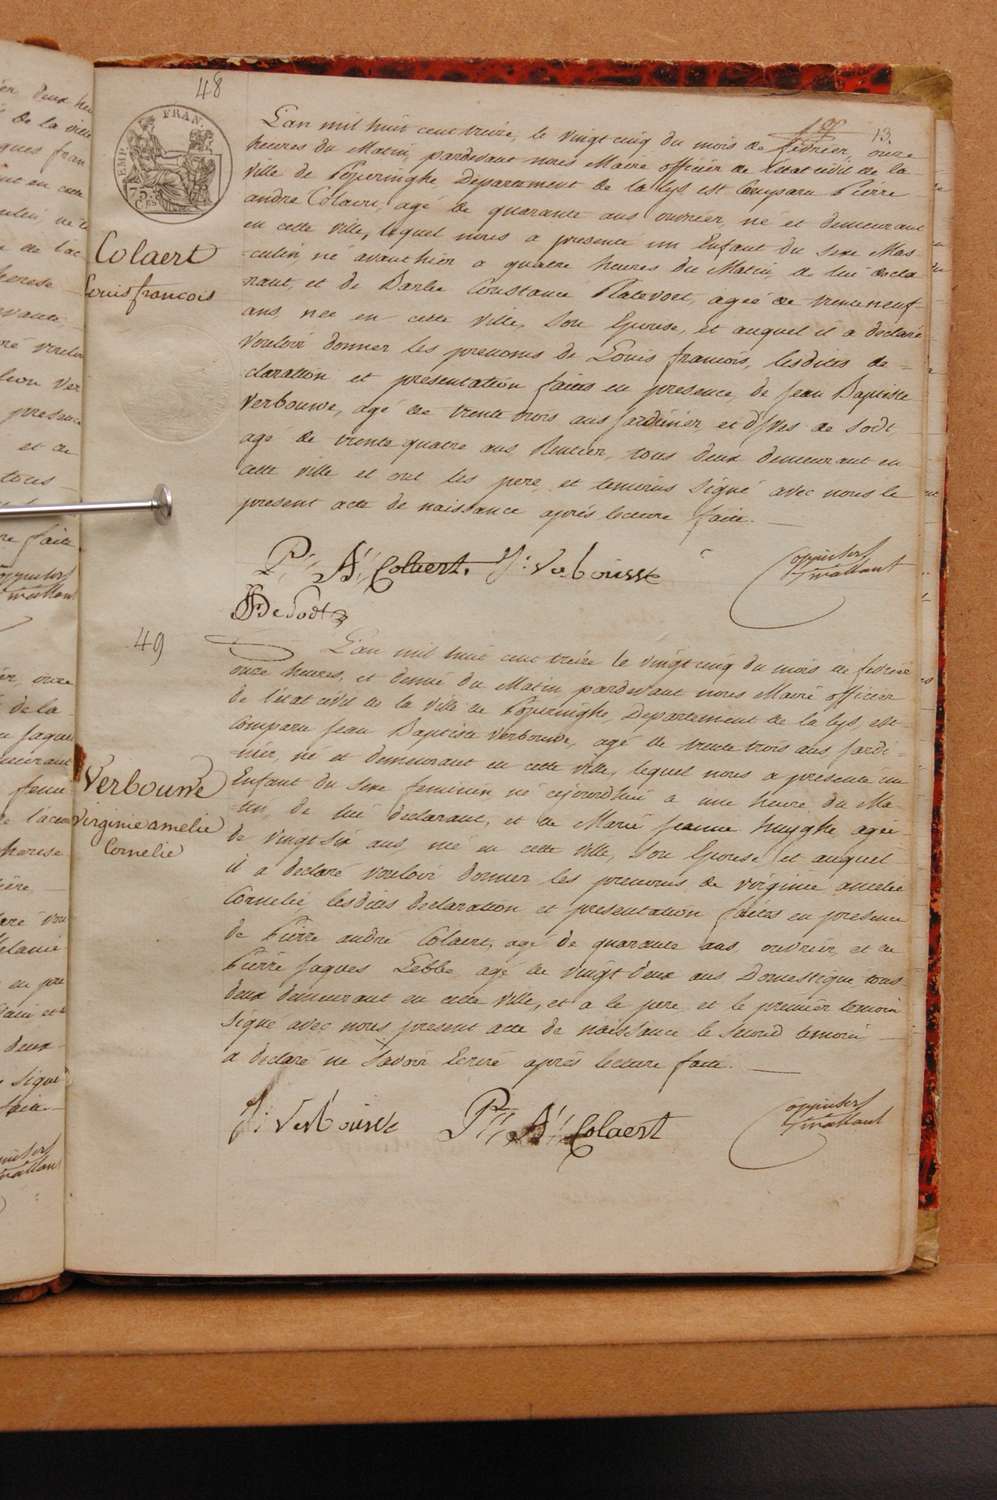 48
13.
EMP. FRAN.
L'an mil huit cent treize, le vingt cinq du mois de fevrier, onze
heures du Matin, pardevant nous Maire officier de l'état civil de la
ville de Poperinghe, Departement de la lys est Comparu Pierre
andré Colaert, agé de quarante ans ouvrier, né et demeurant
en cette ville, lequel nous a presenté un Enfant du sexe Mas
culin, né avant hier a quatre heures du Matin, de lui decla
rant, et de Barbe Constance Platevoet, agée de trente neuf
ans née en cette ville, son Epouse, et auquel il a declaré
vouloir donner les prenoms de Louis francois, lesdites de-
claration et presentation faites en presence, de Jean Baptiste
Verbouwe, agé de trente trois ans jardinier et d'Yves de Sodt,
agé de trente quatre ans, Rentier, tous deux demeurant en
cette ville et ont les pere, et temoins signé avec nous le
present acte de naissance après lecture faite.
Colaert
Louis francois
P: A: Colaert. J: Verbousse
De Sodt
49
L'an mil huit cent treize le vingt cinq du mois de fevrier
onze heures, et demie du Matin pardevant nous Maire officier
de l'état civil de la ville de Poperinghe, Departement de la lys, est
Comparu Jean Baptiste Verbouwe, agé de trente trois ans jardi-
nier, né et demeurant en cette ville, lequel nous a presenté un
Enfant du sexe feminin né cejourdhui a une heure du Ma-
tin, de lui declarant, et de Marie Jeanne huyghe agée
de vingt six ans, née en cette ville, son Epouse et auquel
il a declaré vouloir donner les prenoms de virginie amelie
Cornelie lesdites declaration et presentation faites en presence
de Pierre andré Colaert, agé de quarante ans, ouvrier, et de
Pierre Jaques Lebbe agé de vingt deux ans Domestique tous
deux demeurant en cette ville, et a le pere et le premier temoin
signé avec nous present acte de naissance le second temoin
a declaré ne savoir Ecrire après lecture faite.
Verbouwe
virginie amelie
Cornelie
J: Verbousse P: A: Colaert